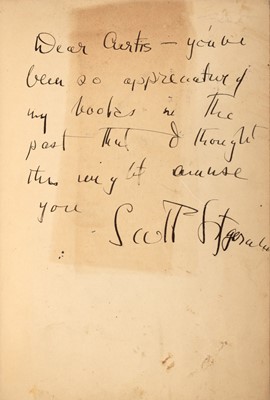 Dear Curtis — you've
been so appreciative of
my books in the
past that I thought
this might amuse
you
Scott Fitzgerald